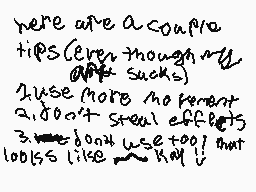 here are a couple
tips (even though my
art sucks)
1. use more movement
2. don't steal effects
3. dont use tool that
lookss like kay !!